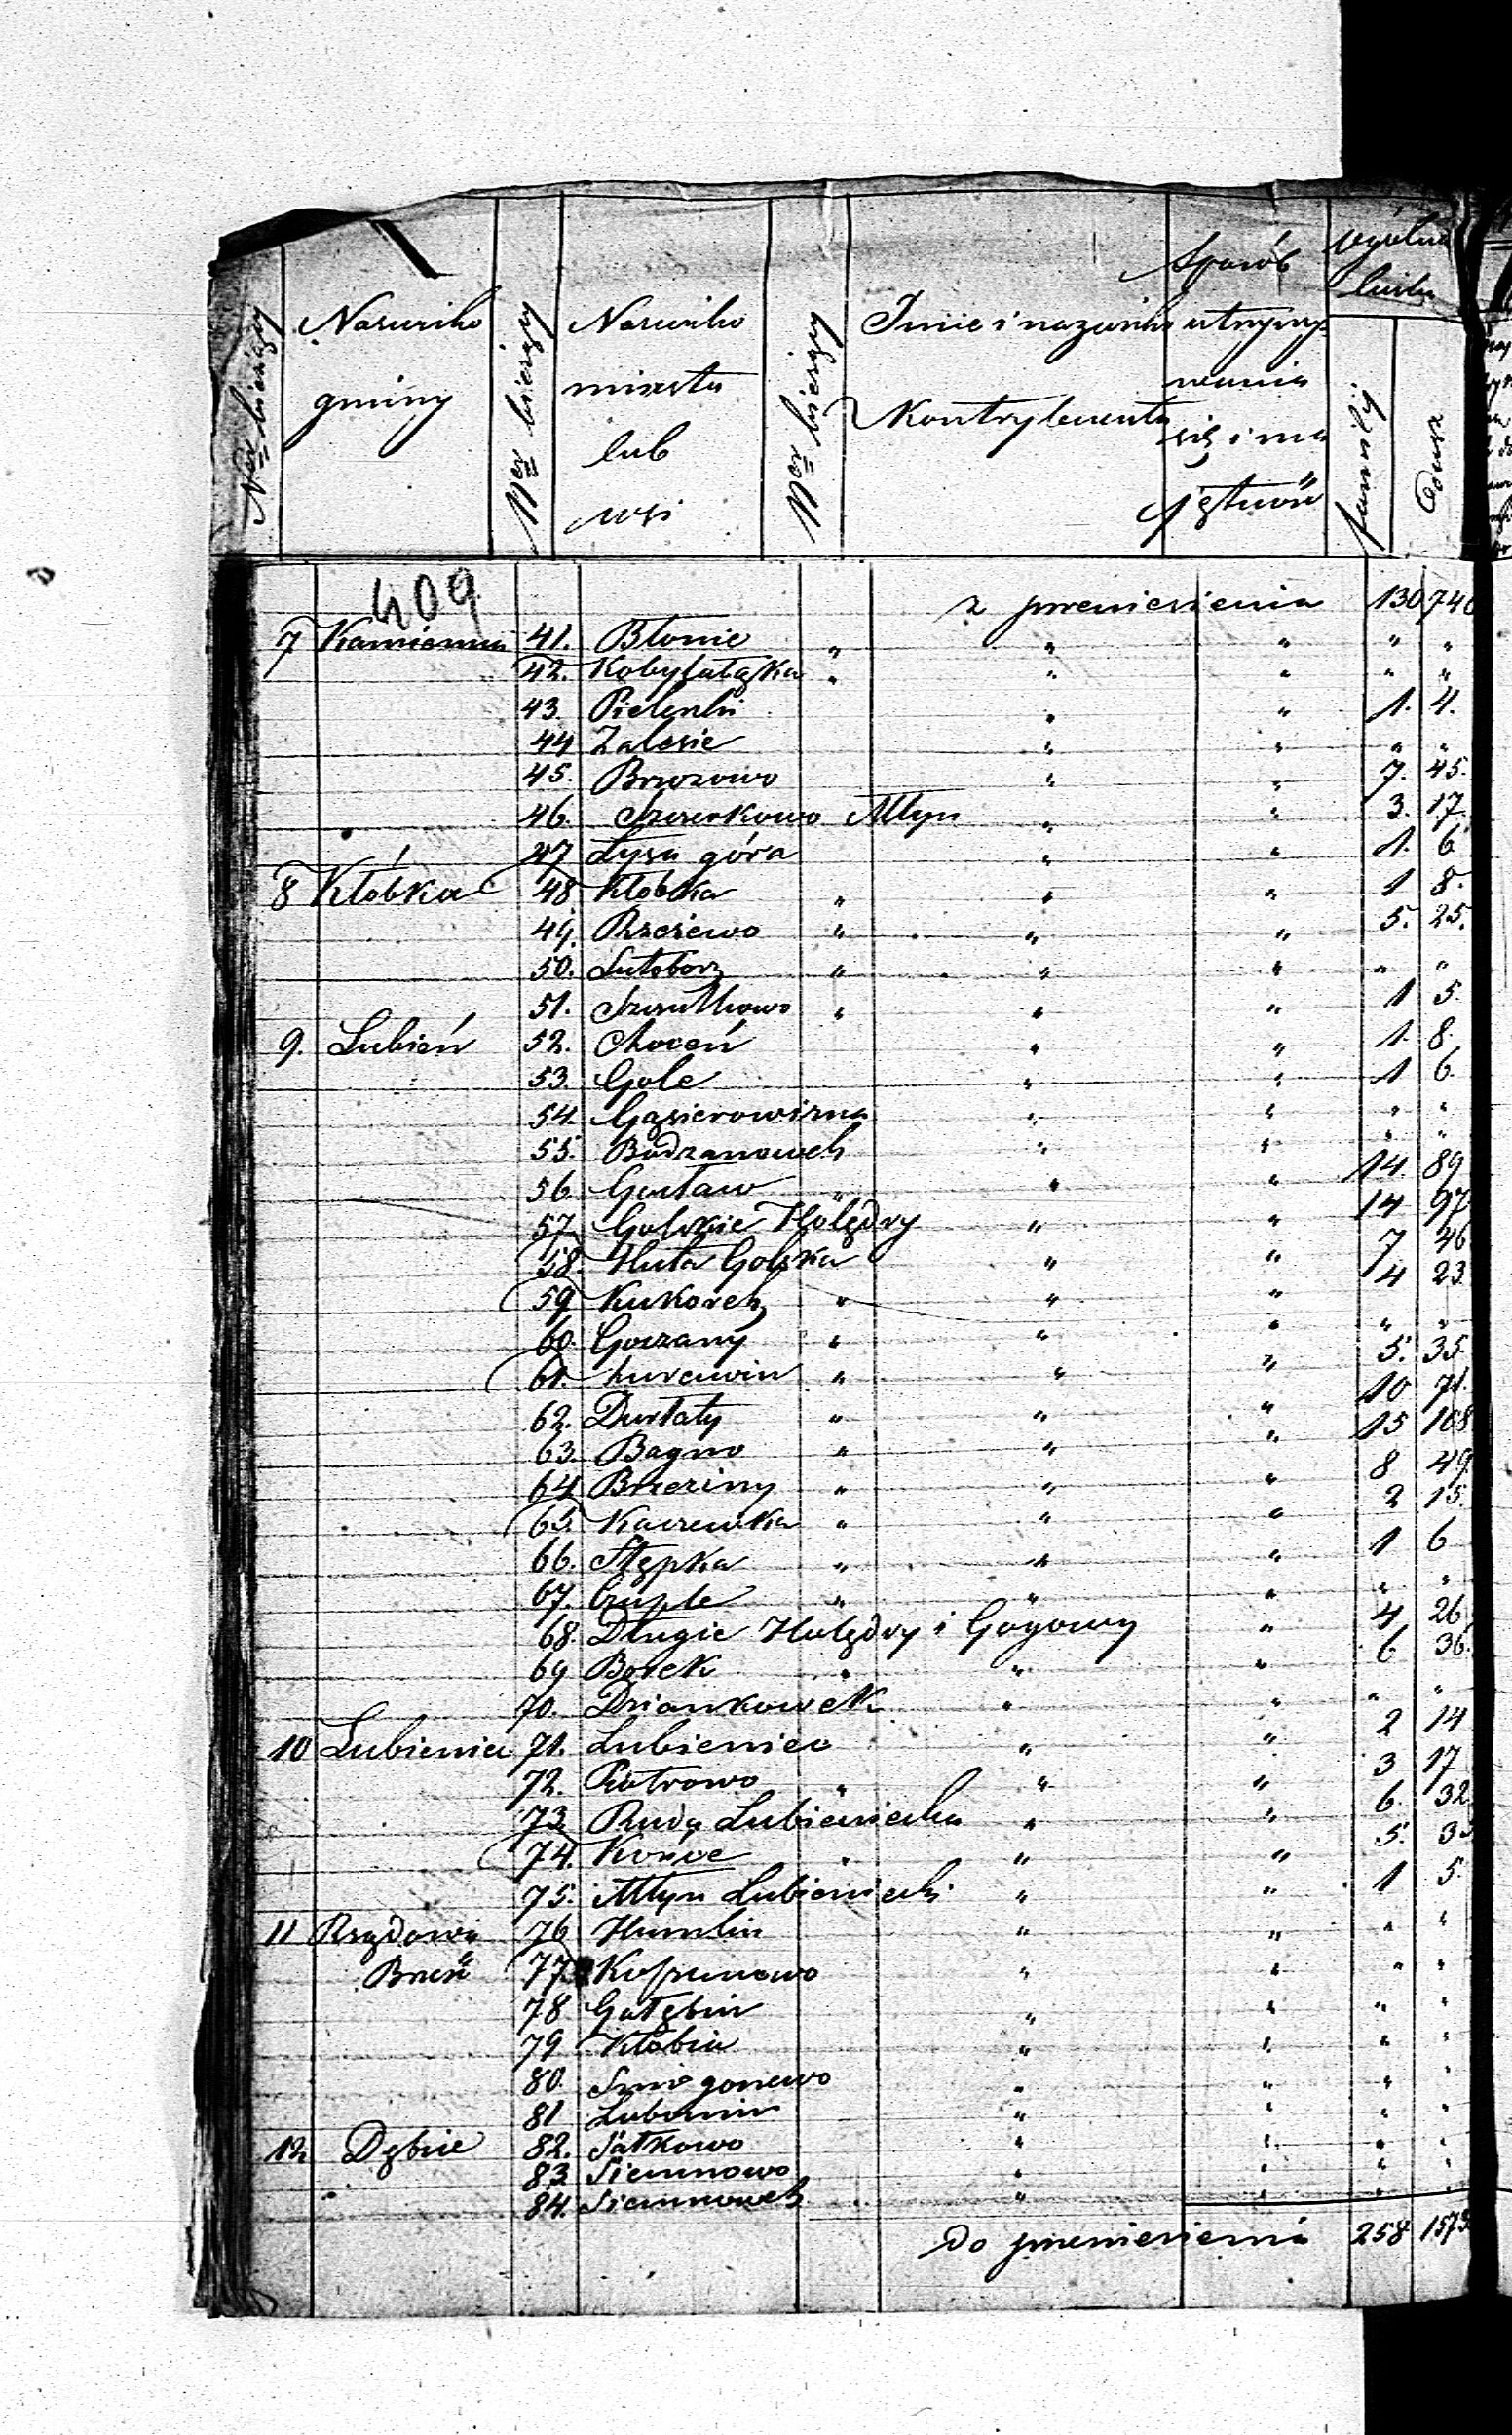 Ner bieżący
Nazwisko gminy
Ner bieżący
Nazwisko miasta lub wsi
Ner bieżący
Imie i nazwisko Kontrybuenta
Sposób utrzymywania się i majętność
ogólna liczba
familij
dusz
409
z przeniesienia 130 740
7 Kamienna 41. Błonie " " " " "
42. Kobyłałąka " " " " "
43. Pielenki " " 1. 4.
44 Zalesie " " " "
45. Brzozowo " " 7. 45.
46. Szczerkowo Młyn " " 3. 17
47 Łysa góra " " 1. 6
8 Kłóbka 48 Kłobka " " " 1 8.
49. Rzeżewo " " " 5. 25.
50. Lutoborz " " " " "
51. Szczutkowo " " " 1 5.
9. Lubień 52. Choceń " " 1. 8.
53. Gole " " 1 6.
54. Gąsierowizna " " " "
55. Bodzanowek " " " "
56. Gocław " " " 14. 89
57. Golskie Holędry " " 14 97
58. Huta Golska " " 7 46
59 Kukawek " " " 4 23.
60. Goczany " " " " "
61. " " " 5. 35.
62. Durłaty " " " 10 71.
63. Bagno " " " 15 108
64 Brzeziny " " " 8 49
65. Kaczewka " " " 2 15.
66. Stępka " " " 1 6
67. Czuple " " " " "
68. Długie Holędry i Goyowy " 4 26
69 Borek " " " 6 36.
70. Dziankowek " " " "
10 Lubieniec 71. Lubieniec " " 2 14
72. Piotrowo " " " 3 17
73 Ruda Lubieniecka " " 6. 32
74. Końce " " " 5. 3
75. Młyn Lubieniecki " " 1 5.
11 Rządowa 76 Humlin " " " "
Brześć 77. " " " "
78 Gołębin " " " "
79 Kłobia " " " "
80. " " " "
81 Lubomin " " " "
12 Dębice 82. Sałkowo " " " "
83 Siemnowo " " " "
84. Siemnowek " " " "
do przeniesienia 258 1573